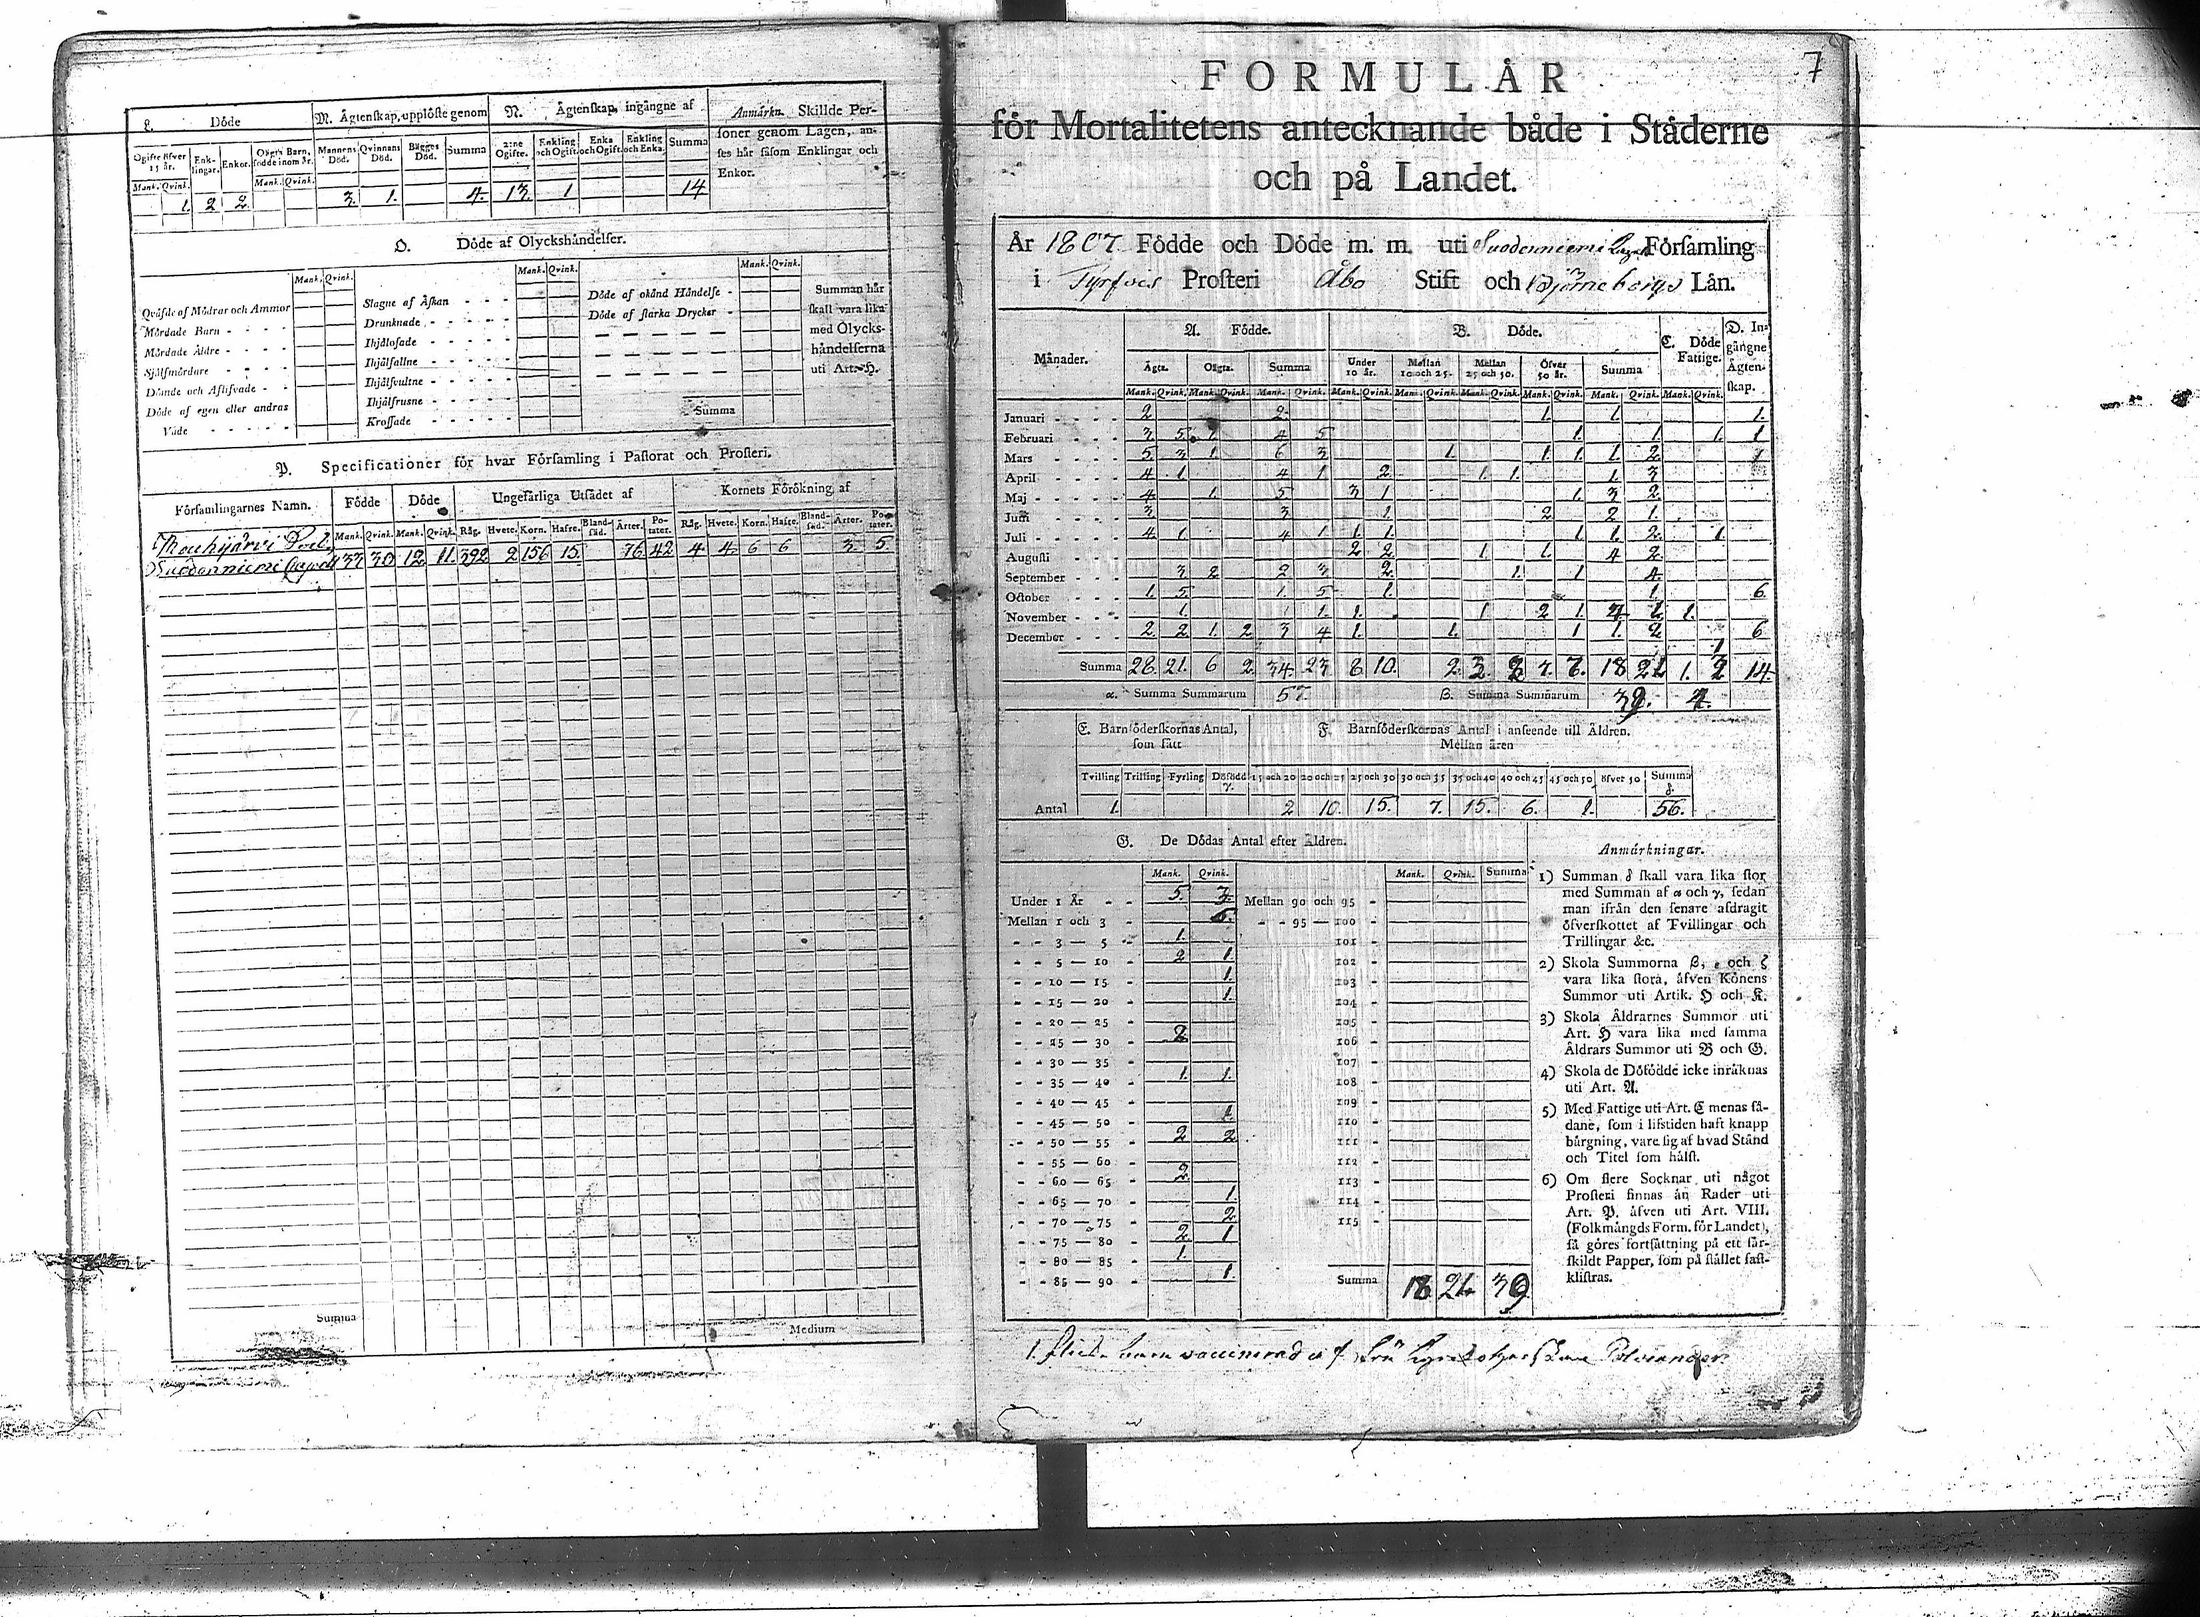 L. Döde
M. Ägtenskap, upplöste genom
N. Ägtenskap, ingångne af
Anmärkn. Skillde Per-
soner genom Lagen, an-
ses här såsom Enklingar och
Enkor.
Ogifte öfver 15 år. Enk-lingar. Enkor. Oägta Barn, födde inom år. Mannens Död. Qvinnans Död. Bägges Död. Summa 2:ne Ogifte. Enkling och Ogift. Enka och Ogift. Enkling och Enka. Summa
Mank. Qvink. Mank. Qvink.
1. 2 2. 3. 1. 4. 13. 1 14
O. Döde af Olyckshändelser.
Mank. Qvink. Mank. Qvink. Mank. Qvink.
Qväfde af Mödrar och Ammor
Mördade Barn - - - -
Mördade Äldre - - - -
Sjelfmördare - - - -
Dömde och Aflifvade - -
Döde af egen eller andras
Våde - - - - -
Slagne af Åskan - - -
Drunknade - - - - -
Ihjälosade - - - -
Ihjälfallne - - - -
Ihjälsvultne - - - -
Ihjälfrusne - - - -
Krossade - - - -
Döde af okänd Händelse -
Döde af starka Drycker -
Summa
Summan här
skall vara lika
med Olycks-
händelserna
uti Art. H.
P. Specificationer för hvar Församling i Pastorat och Prosteri.
Församlingarnes Namn. Födde Döde Ungefärliga Utsädet af Kornets Förökning af
Mank. Qvink. Mank. Qvink. Råg. Hvete. Korn. Hafre. Bland-säd. Ärter. Po-tater. Råg. Hvete. Korn. Hafre. Bland-säd. Ärter. Po-tater.
Mouhijärvi
Suodenniemi Capell 33 30 12 11. 392 2 156 15. 76 42 4 4. 6 6 3. 5.
Summa
Medium
7
FORMULÄR
för Mortalitetens antecknande både i Städerne
och på Landet.
År 1807 Födde och Döde m. m. uti Suodenniemi Församling
i Tyrfvis Prosteri Åbo Stift och Björneborgs Län.
Månader. A. Födde. B. Döde. C. Döde Fattige. D. In-gångne Ägten-skap.
Ägta. Oägta. Summa Under 10 år. Mellan 10 och 25. Mellan 25 och 50. Öfver 50 år. Summa
Mank. Qvink. Mank. Qvink. Mank. Qvink. Mank. Qvink. Mank. Qvink. Mank. Qvink. Mank. Qvink. Mank. Qvink. Mank. Qvink.
Januari - - - - 2 2. 1. 1. 1.
Februari - - - 3. 5. 1. 4 5 1. 1. 1. 1
Mars - - - - 5. 3 1. 6 3 1. 1. 1. 1. 2. 1
April - - - - 4 1. 4 1 2. 1. 1. 1. 3
Maj - - - - 4. 1. 5 3 1 1. 3 2.
Juni - - - - 3. 3. 1. 2 2 1.
Juli - - - - 4. 1. 4 1 1. 1. 1. 1. 2. 1.
Augusti - - - 2 2. 1. 1. 4 2.
September - - - 3 2. 2 3 2. 1. 1 4.
October - - - 1. 5 1. 5 1. 1. 6
November - - - 1. 1 1. 1. 1 2 1. 4. 1. 1.
December - - - 2. 2 1. 2 3 4 1. 1. 1 1. 2 1 6
Summa 28. 21. 6 2. 34. 23 8 10. 2 3. 2. 7. 7. 18 21 1. 3 14.
α. Summa Summarum 57. β. Summa Summarum 39. 4.
E. Barnföderskornas Antal,
som fått
F. Barnföderskornas Antal i anseende till Åldren.
Mellan åren
Tvilling Trilling Fyrling Dödfödd γ. 15 och 20 20 och 25 25 och 30 30 och 35 35 och 40 40 och 45 45 och 50 öfver 50 Summa δ
Antal 1. 2 10. 15. 7. 15. 6. 1. 56.
G. De Dödas Antal efter Åldren.
Mank. Qvink. Mank. Qvink. Summa
Under 1 År - - 5. 3. Mellan 90 och 95 -
Mellan 1 och 3 - 5. - - 95 — 100 -
- - 3 — 5 - 1. 101 -
- - 5 — 10 - 2 1. 102 -
- - 10 — 15 - 1. 103 -
- - 15 — 20 - 1. 104 -
- - 20 — 25 - 105 -
- - 25 — 30 - 2. 106 -
- - 30 — 35 - 107 -
- - 35 — 40 - 1. 1. 108 -
- - 40 — 45 - 109 -
- - 45 — 50 - 1. 110 -
- - 50 — 55 - 2 2 111 -
- - 55 — 60 - 112 -
- - 60 — 65 - 2. 113 -
- - 65 — 70 - 1. 114 -
- - 70 — 75 - 2. 115 -
- - 75 — 80 - 2. 1
- - 80 — 85 - 1.
- - 85 — 90 - 1. Summa 18 21. 39
Anmärkningar.
1) Summan δ skall vara lika stor
med Summan af α och γ, sedan
man ifrån den senare afdragit
öfverskottet af Tvillingar och
Trillingar &c.
2) Skola Summorna β, ε och ζ
vara lika stora, äfven Könens
Summor uti Artik. H och K.
3) Skola Åldrarnes Summor uti
Art. H vara lika med samma
Åldrars Summor uti B och G.
4) Skola de Döfödde icke inräknas
uti Art. A.
5) Med Fattige uti Art. C menas så-
dane, som i lifstiden haft knapp
bärgning, vare sig af hvad Stånd
och Titel som hälst.
6) Om flere Socknar uti något
Prosteri finnas än Rader uti
Art. P. äfven uti Art. VIII.
(Folkmängds Form. för Landet),
så göres fortsättning på ett sär-
skildt Papper, som på stället fast-
klistras.
vaccinerad af Fru Polviander